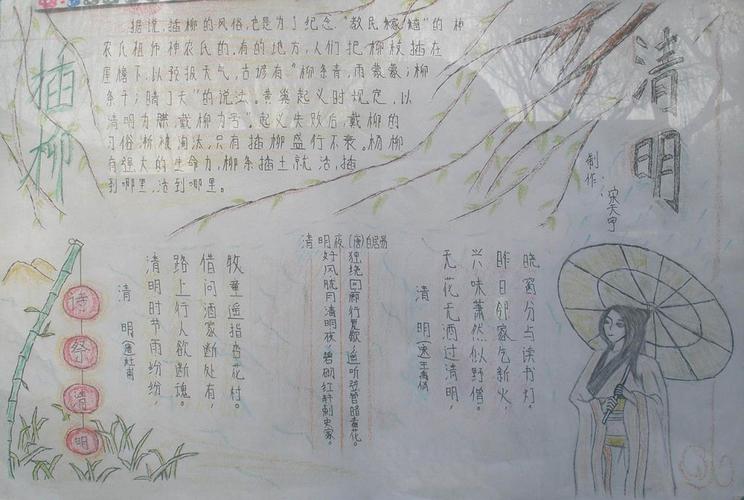 插柳
据说，插柳的风俗，也是为了纪念“教民稼穑”的神
农氏祖师神农氏的。有的地方，人们把柳枝插在
屋檐下，以预报天气，古谚有“柳条青，雨蒙蒙；柳
条干；晴了天”的说法。黄巢起义时规定，以
清明为期，戴柳为号”。起义失败后，戴柳的
习俗渐被淘汰，只有插柳盛行不衰。杨柳
有强大的生命力，柳条插土就活，插
到哪里，活到哪里。
清明
制作：宋天宇
诗祭清明
清明（唐）杜甫
清明时节雨纷纷
路上行人欲断魂。
借问酒家断处有，
牧童遥指杏花村。
清明夜（唐）白居易
好风胧月清明夜，碧砌红轩刺史家。
独绕回廊行复歇，遥听弦管暗看花。
清明
无花无酒过清明，
兴味萧然似野僧。
昨日邻家乞新火，
晓窗分与读书灯。